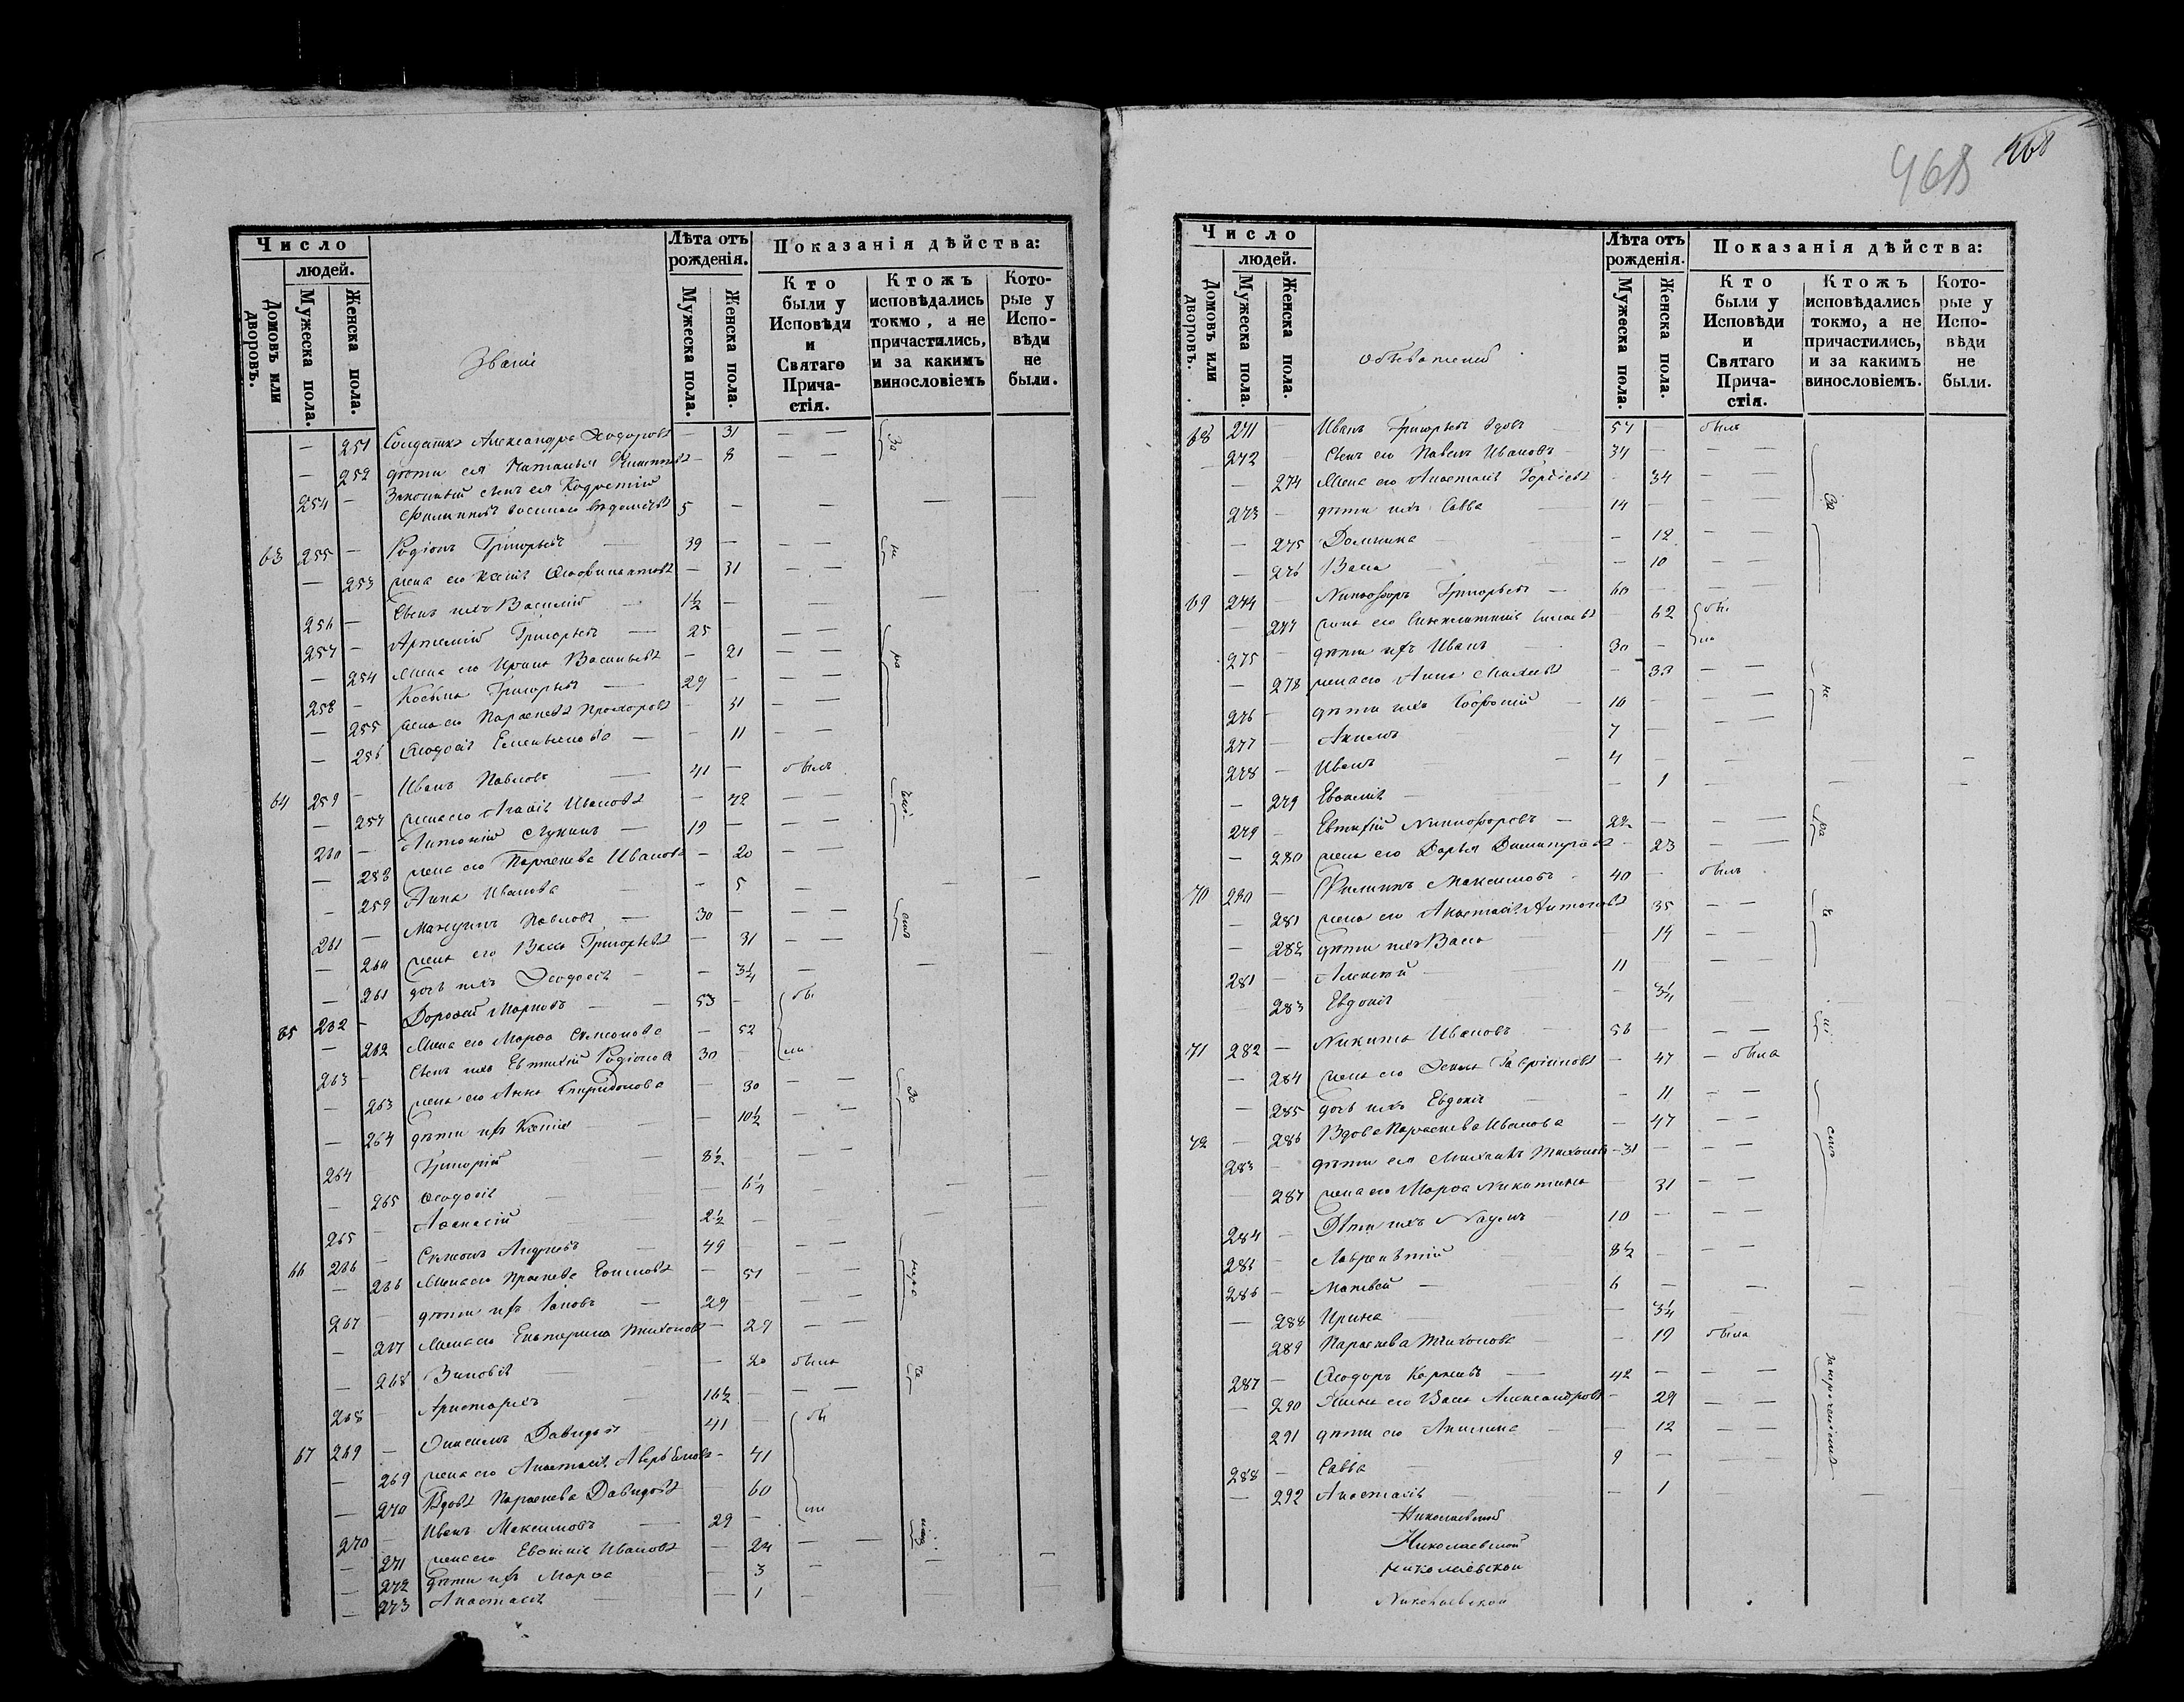 Число
людей.
Домовъ или дворовъ.
Мужеска пола.
Женска пола.
Званіе
Лѣта отъ рожденія.
Мужеска пола.
Женска пола.
Показанія дѣйства:
Кто были у Исповѣди и Святаго Причастія.
Ктожъ исповѣдались токмо, а не причастились, и за какимъ винословіемъ
Которые у Исповѣди не были.
— 251 Солдатка Александра Ѳеодорова — 31 — —
— 252 дѣти ея Наталья — 8 — —
254 — Законный сынъ ея Кодратій
Филиппъ военнаго вѣдомства 5 — — —
63 255 — Родіонъ Григорьевъ 39 — — —
— 253 жена его Ксенія — 31 — —
256 — Сынъ ихъ Василій 1½ —
257 — Артемій Григорьевъ 25 — —
— 254 Жена его Ирина Васильева — 21 — —
258 — Косьма Григорьевъ 29 — — —
— 255 жена его Параскева Прохорова — 31 — —
— 256 Ѳеодосія Емельянова — — 11 — —
64 259 — Иванъ Павловъ 41 — былъ
— 257 жена его Агафія Иванова — 42 — —
260 — Антоній 19 — — —
— 258 жена его Параскева Иванова — 20 — —
— 259 Анна Иванова — 5 —
261 — Павловъ 30 — — —
— 260 жена его Васса Григорьева — 31 — —
— 261 дочь ихъ Ѳеодосія — — 3¼ —
65 262 — Дороѳей Марковъ 53 — бы
— 262 Жена его Марѳа Симеонова — 52
263 — Сынъ ихъ Евтихій Родіоновъ 30 — ли
— 263 жена его Анна Спиридонова — 30 — —
— 264 дѣти ихъ Ксенія — 10½ — —
264 Григорій 8½ — — —
— 265 Ѳеодосія — 6¼ —
265 — Аѳанасій 2½ — —
66 266 — Симеонъ Андреевъ 49 — — —
— 266 Жена его Параскева — 51 — —
267 — дѣти ихъ Іаковъ 29 — —
— 267 Жена его Екатерина Тихонова — 29 — —
— 268 Зиновія — 20 была
268 — Аристархъ 16½ — — —
67 269 — Онисимъ Давидовъ 41 — бы
— 269 жена его Анастасія — 41
— 270 Вдова Параскева Давидова — 60 ли
270 — Иванъ Максимовъ 29 — —
— 271 жена его Евѳимія Иванова — 24 — —
— 272 дѣти ихъ Марѳа — 3 —
— 273 Анастасія — 1 —
468
468
Число
людей.
Домовъ или дворовъ.
Мужеска пола.
Женска пола.
Обывателей
Лѣта отъ рожденія.
Мужеска пола.
Женска пола.
Показанія дѣйства:
Кто были у Исповѣди и Святаго Причастія.
Ктожъ исповѣдались токмо, а не причастились, и за какимъ винословіемъ.
Которые у Исповѣди не были.
68 271 — Иванъ Григорьевъ вдовъ 57 — былъ
272 Сынъ его Павелъ Ивановъ 34 — — —
— 274 Жена его Анастасія Гордѣева — 34 — —
273 — дѣти ихъ Савва 14 — — —
— 275 Домника — 12 — —
— 276 Васса — 10 — —
69 274 — Никифоръ Григорьевъ — 60 — — —
— 277 жена его Синклитикія — 62 бы
275 — дѣти ихъ Иванъ 30 — ли
— 278 жена его Анна — 33 — —
276 — дѣти ихъ Софроній 10 — — —
277 — Акимъ 7 — — —
278 — Иванъ 4 — —
— 279 Евѳимія — 1 —
279 — Евтихій Никифоровъ 22 — — —
— 280 жена его Дарья — 23 — —
70 280 — Филиппъ Максимовъ 40 — былъ
— 281 жена его Анастасія Антонова 35 — —
— 282 дѣти ихъ Васса — 14 — —
281 — Алексѣй 11 — — —
283 Евдокія — 3¼
71 282 — Никита Ивановъ 56 — — —
— 284 жена его Гавриилова — 47 — была
— 285 дочь ихъ Евдокія — 11 — —
72 — 286 Вдова Параскева Иванова — 47 — —
283 — дѣти ея Михаилъ Тихоновъ 31 — — —
287 жена его Марѳа Никитина 31 — —
284 — Дѣти ихъ Наумъ 10 — — —
285 — Лаврентій 8½ — — —
286 — Матвей 6 — — —
— 288 Ирина — 3¼
289 Параскева Тихонова — 19 была
287 — Ѳеодоръ 42 — — —
— 290 Жена его Васса Александрова — 29 — —
291 дѣти его Акилина — 12 — —
288 — Савва 9 — — —
— 292 Анастасія — 1 —
Николаевской
Николаевской
Николаевской
Николаевской